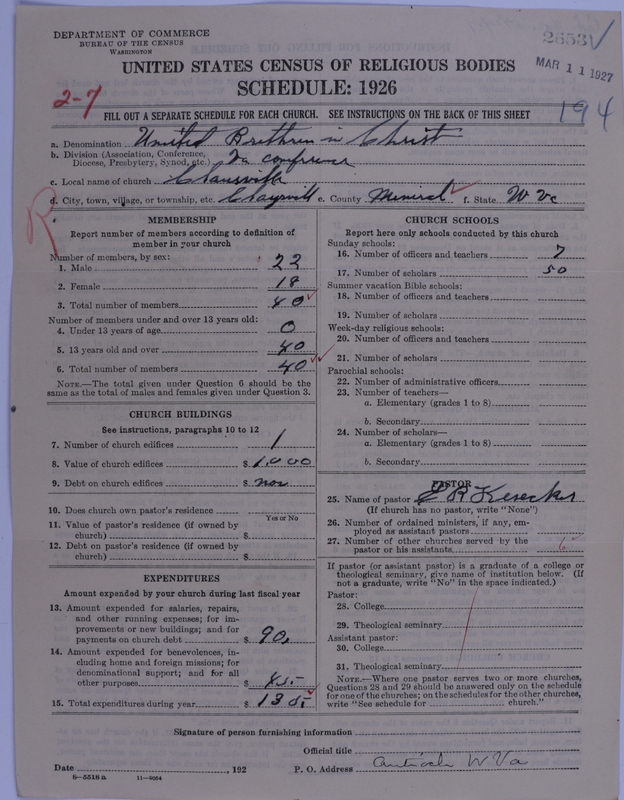 DEPARTMENT OF COMMERCE
BUREAU OF THE CENSUS
WASHINGTON
26531
MAR 11 1927
UNITED STATES CENSUS OF RELIGIOUS BODIES
SCHEDULE: 1926
2-7
194
FILL OUT A SEPARATE SCHEDULE FOR EACH CHURCH. SEE INSTRUCTIONS ON THE BACK OF THIS SHEET
a. Denomination United Brethren in Christ
b. Division (Association, Conference, Diocese, Presbytery, Synod, etc.) Va conference
c. Local name of church
d. City, town, village, or township, etc. Claysvill e. County Mineral f. State W Va
R
MEMBERSHIP
Report number of members according to definition of member in your church
Number of members, by sex:
1. Male 22
2. Female 18
3. Total number of members 40
Number of members under and over 13 years old:
4. Under 13 years of age 0
5. 13 years old and over 40
6. Total number of members 40
NOTE.—The total given under Question 6 should be the same as the total of males and females given under Question 3.
CHURCH BUILDINGS
See instructions, paragraphs 10 to 12
7. Number of church edifices 1
8. Value of church edifices $ 1,000
9. Debt on church edifices $ non
10. Does church own pastor's residence
Yes or No
11. Value of pastor's residence (if owned by church) $
12. Debt on pastor's residence (if owned by church) $
EXPENDITURES
Amount expended by your church during last fiscal year
13. Amount expended for salaries, repairs, and other running expenses; for improvements or new buildings; and for payments on church debt $ 90
14. Amount expended for benevolences, including home and foreign missions; for denominational support; and for all other purposes $ 45
15. Total expenditures during year $ 135
CHURCH SCHOOLS
Report here only schools conducted by this church
Sunday schools:
16. Number of officers and teachers 7
17. Number of scholars 50
Summer vacation Bible schools:
18. Number of officers and teachers
19. Number of scholars
Week-day religious schools:
20. Number of officers and teachers
21. Number of scholars
Parochial schools:
22. Number of administrative officers
23. Number of teachers—
a. Elementary (grades 1 to 8)
b. Secondary
24. Number of scholars—
a. Elementary (grades 1 to 8)
b. Secondary
PASTOR
25. Name of pastor E R Kesecker
(If church has no pastor, write "None")
26. Number of ordained ministers, if any, employed as assistant pastors
27. Number of other churches served by the pastor or his assistants 6
If pastor (or assistant pastor) is a graduate of a college or theological seminary, give name of institution below. (If not a graduate, write "No" in the space indicated.)
Pastor:
28. College
29. Theological seminary
Assistant pastor:
30. College
31. Theological seminary
NOTE.—Where one pastor serves two or more churches, Questions 28 and 29 should be answered only on the schedule for one of the churches; on the schedules for the other churches, write "See schedule for church."
Signature of person furnishing information
Official title
Date , 192
P. O. Address Antioch W Va
8—5518 a 11—9054